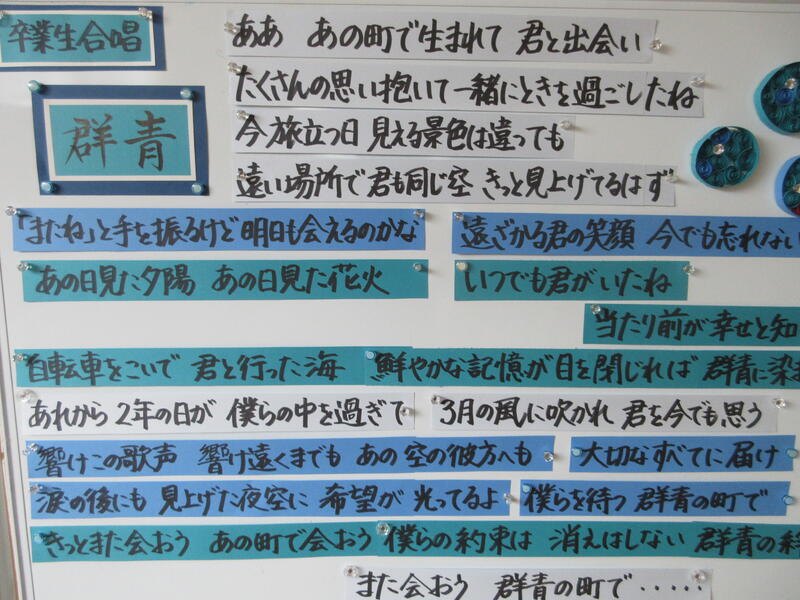 卒業生合唱
群青
ああ あの町で生まれて 君と出会い
たくさんの思い抱いて 一緒にときを過ごしたね
今旅立つ日 見える景色は違っても
遠い場所で君も同じ空 きっと見上げてるはず
「またね」と手を振るけど 明日も会えるのかな
遠ざかる君の笑顔 今でも忘れない
あの日見た夕陽 あの日見た花火
いつでも君がいたね
当たり前が幸せと知
自転車をこいで 君と行った海
鮮やかな記憶が 目を閉じれば 群青に染ま
あれから2年の日が 僕らの中を過ぎて
3月の風に吹かれ 君を今でも思う
響けこの歌声 響け遠くまでも あの空の彼方へも
大切なすべてに届け
涙の後にも 見上げた夜空に 希望が 光ってるよ
僕らを待つ 群青の町で
きっとまた会おう あの町で会おう 僕らの約束は 消えはしない 群青の絆
また会おう 群青の町で・・・・・